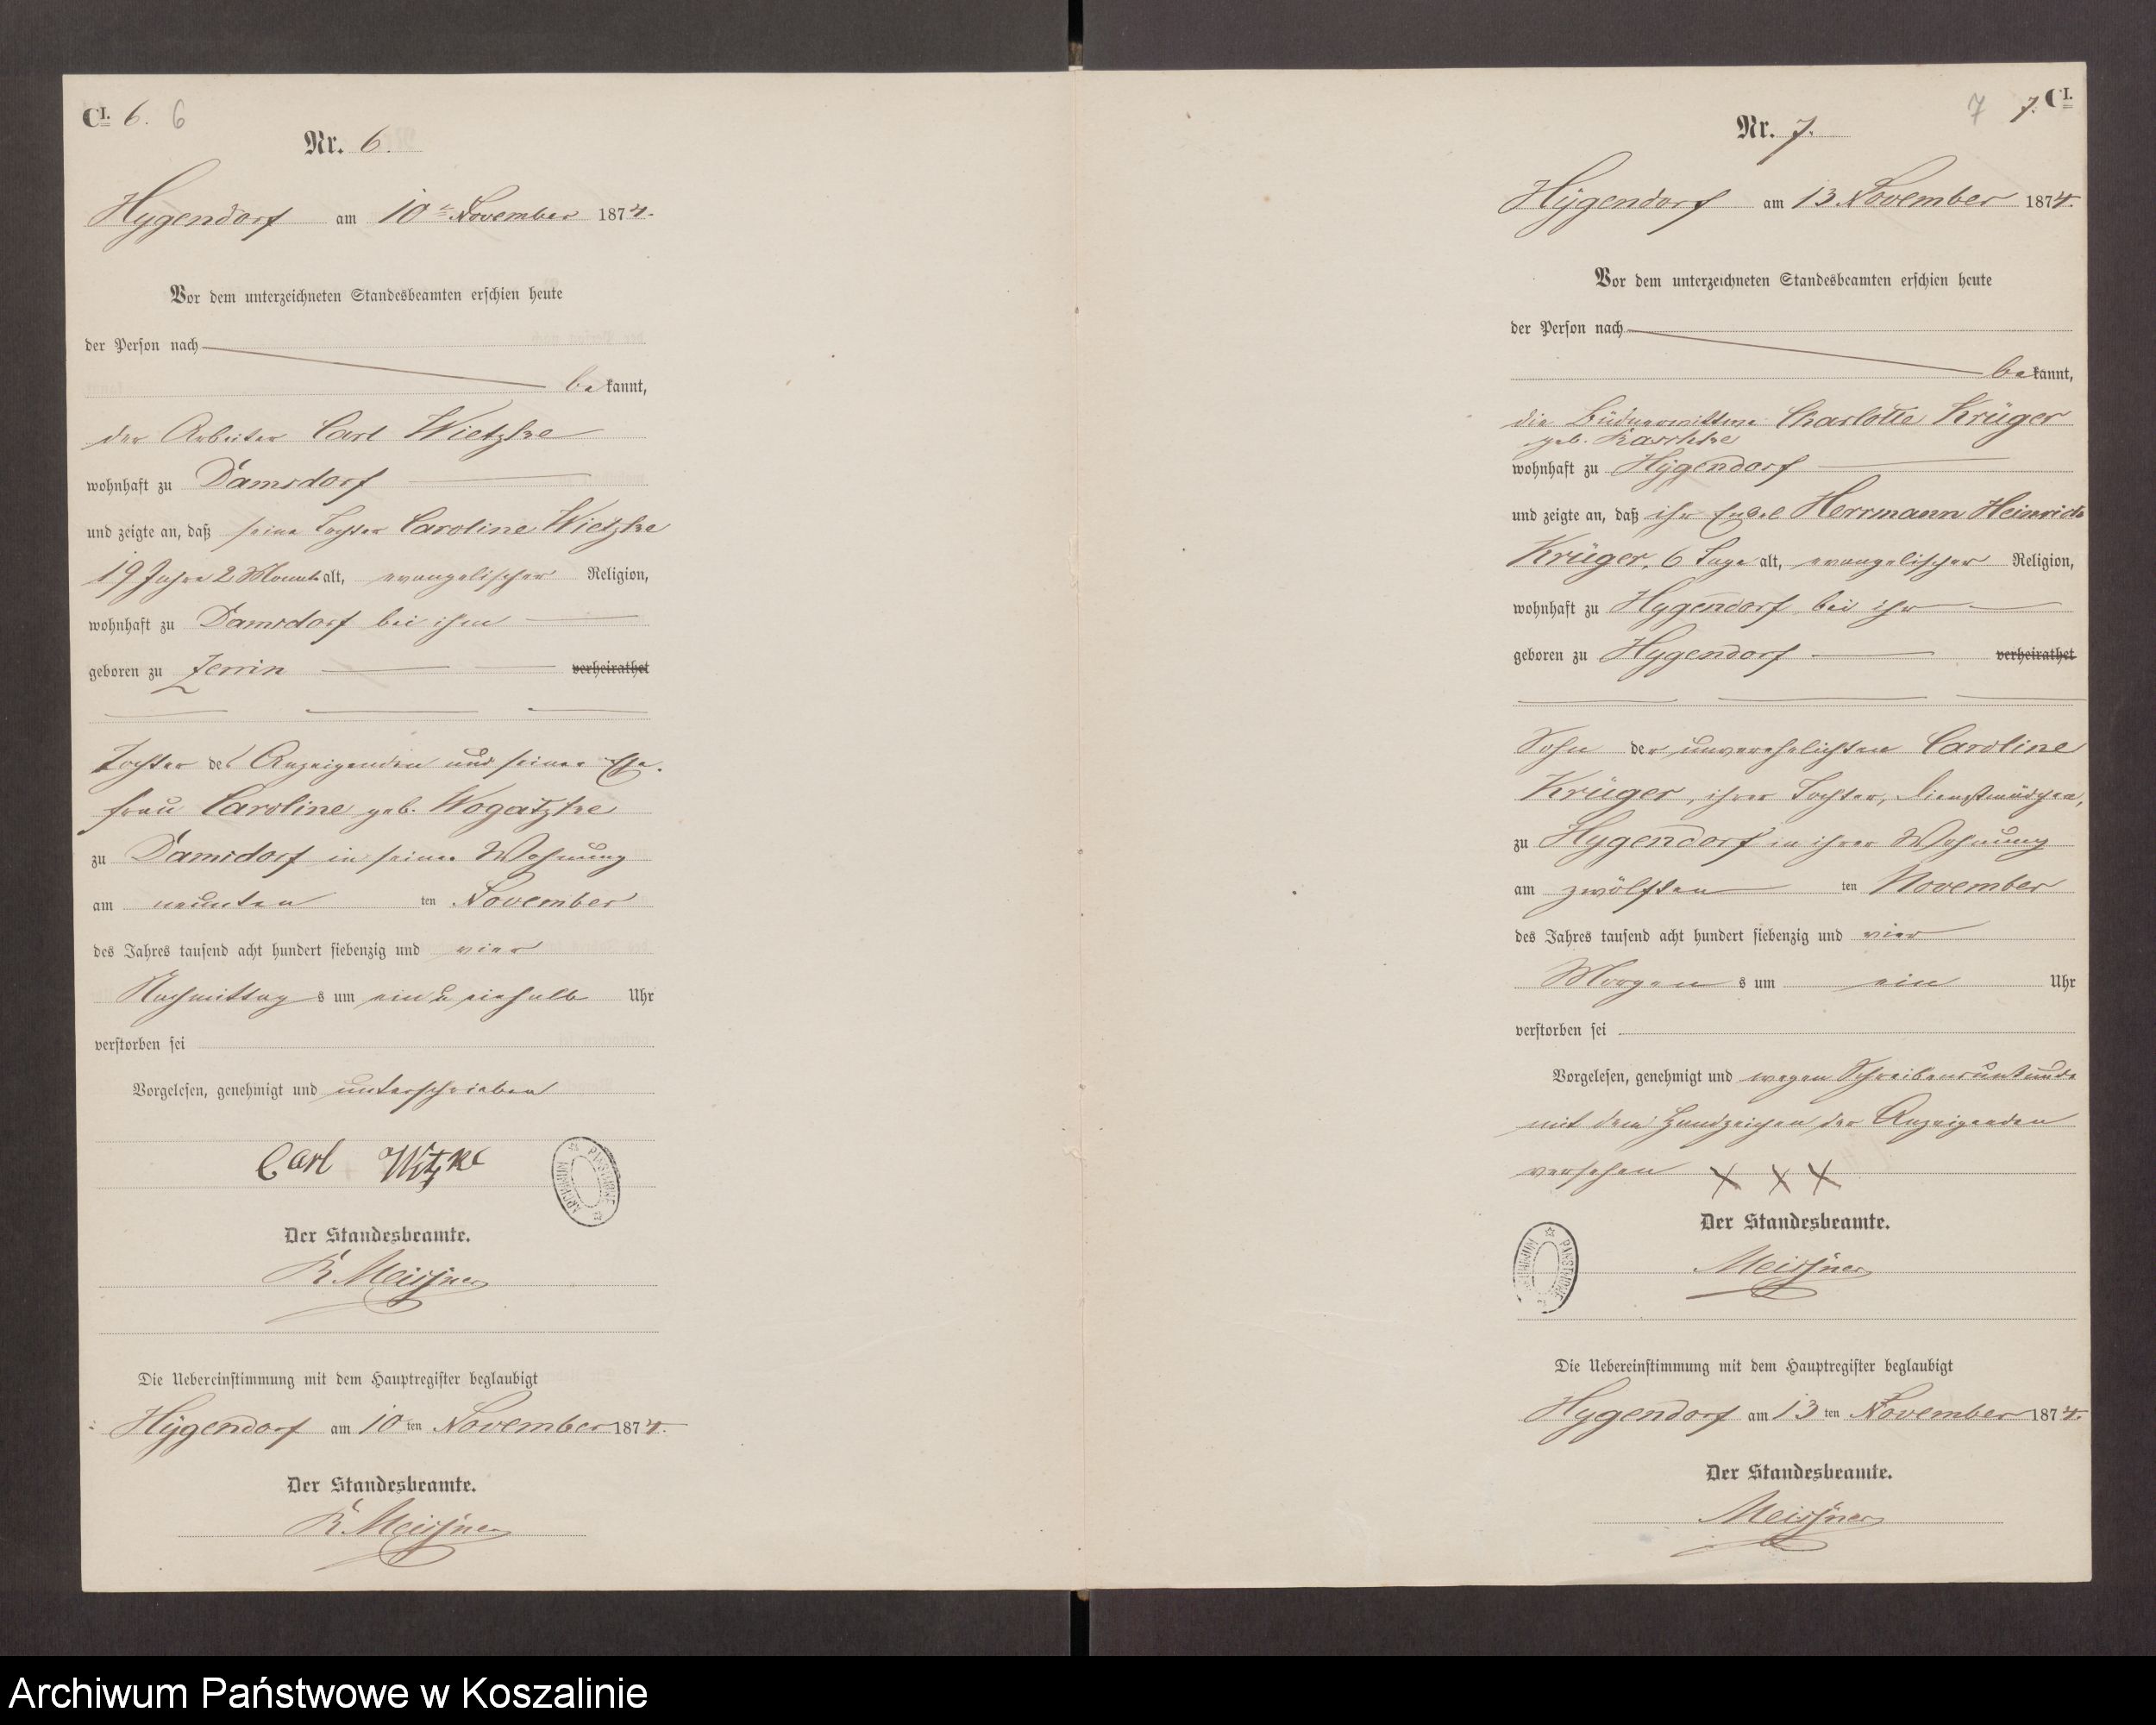 CI. 6. 6
Nr. 6.
Hygendorf am 10ten November 1874.
Vor dem unterzeichneten Standesbeamten erschien heute
der Person nach
bekannt,
der Arbeiter Carl Wietzke
wohnhaft zu Damsdorf
und zeigte an, daß seine Tochter Caroline Wietzke
19 Jahre 2 Monat alt, evangelischer Religion,
wohnhaft zu Damsdorf bei ihm
geboren zu Jerrin verheirathet
Tochter des Anzeigenden und seiner Ehe-
frau Caroline geb. Wogatzke
zu Damsdorf in seiner Wohnung
am neunten ten November
des Jahres tausend acht hundert siebenzig und vier
Nachmittags um ein u einhalb Uhr
verstorben sei
Vorgelesen, genehmigt und unterschrieben
Carl Witzke
ARCHIWUM PAŃSTWOWE
Der Standesbeamte.
R. Meissner
Die Uebereinstimmung mit dem Hauptregister beglaubigt
Hygendorf am 10 ten November 1874.
Der Standesbeamte.
R. Meissner
7 7. CI.
Nr. 7.
Hygendorf am 13 November 1874.
Vor dem unterzeichneten Standesbeamten erschien heute
der Person nach
bekannt,
die Büdnerwittwe Charlotte Krüger
geb. Raschke
wohnhaft zu Hygendorf
und zeigte an, daß ihr Enkel Herrmann Heinrich
Krüger, 6 Tage alt, evangelischer Religion,
wohnhaft zu Hygendorf bei ihr
geboren zu Hygendorf verheirathet
Sohn der unverehelichten Caroline
Krüger, ihrer Tochter, Dienstmädchen,
zu Hygendorf in ihrer Wohnung
am zwölften ten November
des Jahres tausend acht hundert siebenzig und vier
Morgens um ein Uhr
verstorben sei
Vorgelesen, genehmigt und wegen Schreibensunkunde
mit dem Handzeichen der Anzeigenden
versehen X X X
Der Standesbeamte.
Meissner
ARCHIWUM PAŃSTWOWE
Die Uebereinstimmung mit dem Hauptregister beglaubigt
Hygendorf am 13 ten November 1874.
Der Standesbeamte.
Meissner
Archiwum Państwowe w Koszalinie